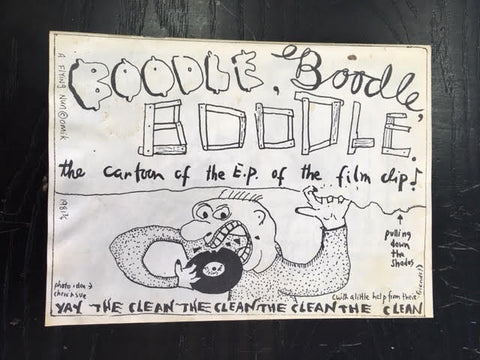 BOODLE,
Boodle,
BOODLE.
the cartoon of the E.P. of the film clip!
A FLYING NUN ©omik
pulling
down
the
shades
photo idea →
chris h sve
(with a little help from there friends)
YAY THE CLEAN THE CLEAN THE CLEAN THE CLEAN